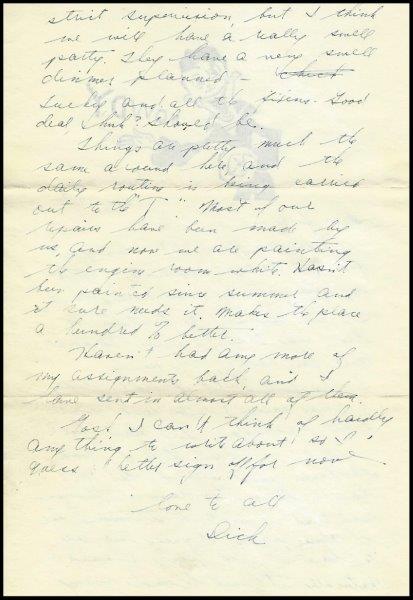 strict supervision, but I think
we will have a really swell
party. They have a very swell
dinner planned –
Turkey and all the fixens. Good
deal I think? Should be.
Things are pretty much the
same around here, and the
daily routine is being carried
out to the "T". Most of our
repairs have been made by
us, and now we are painting
the engine room white. Hasn't
been painted since summer and
it sure needs it. Makes the place
a hundred % better.
Haven't had any more of
my assignments back, and I
have sent in almost all of them.
Gosh I can't think of hardly
anything to write about so I
guess I better sign off for now.
Love to all
Dick